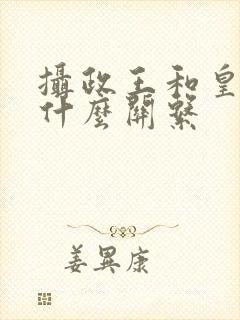 攝政王和皇
什麼關繫
姜異康